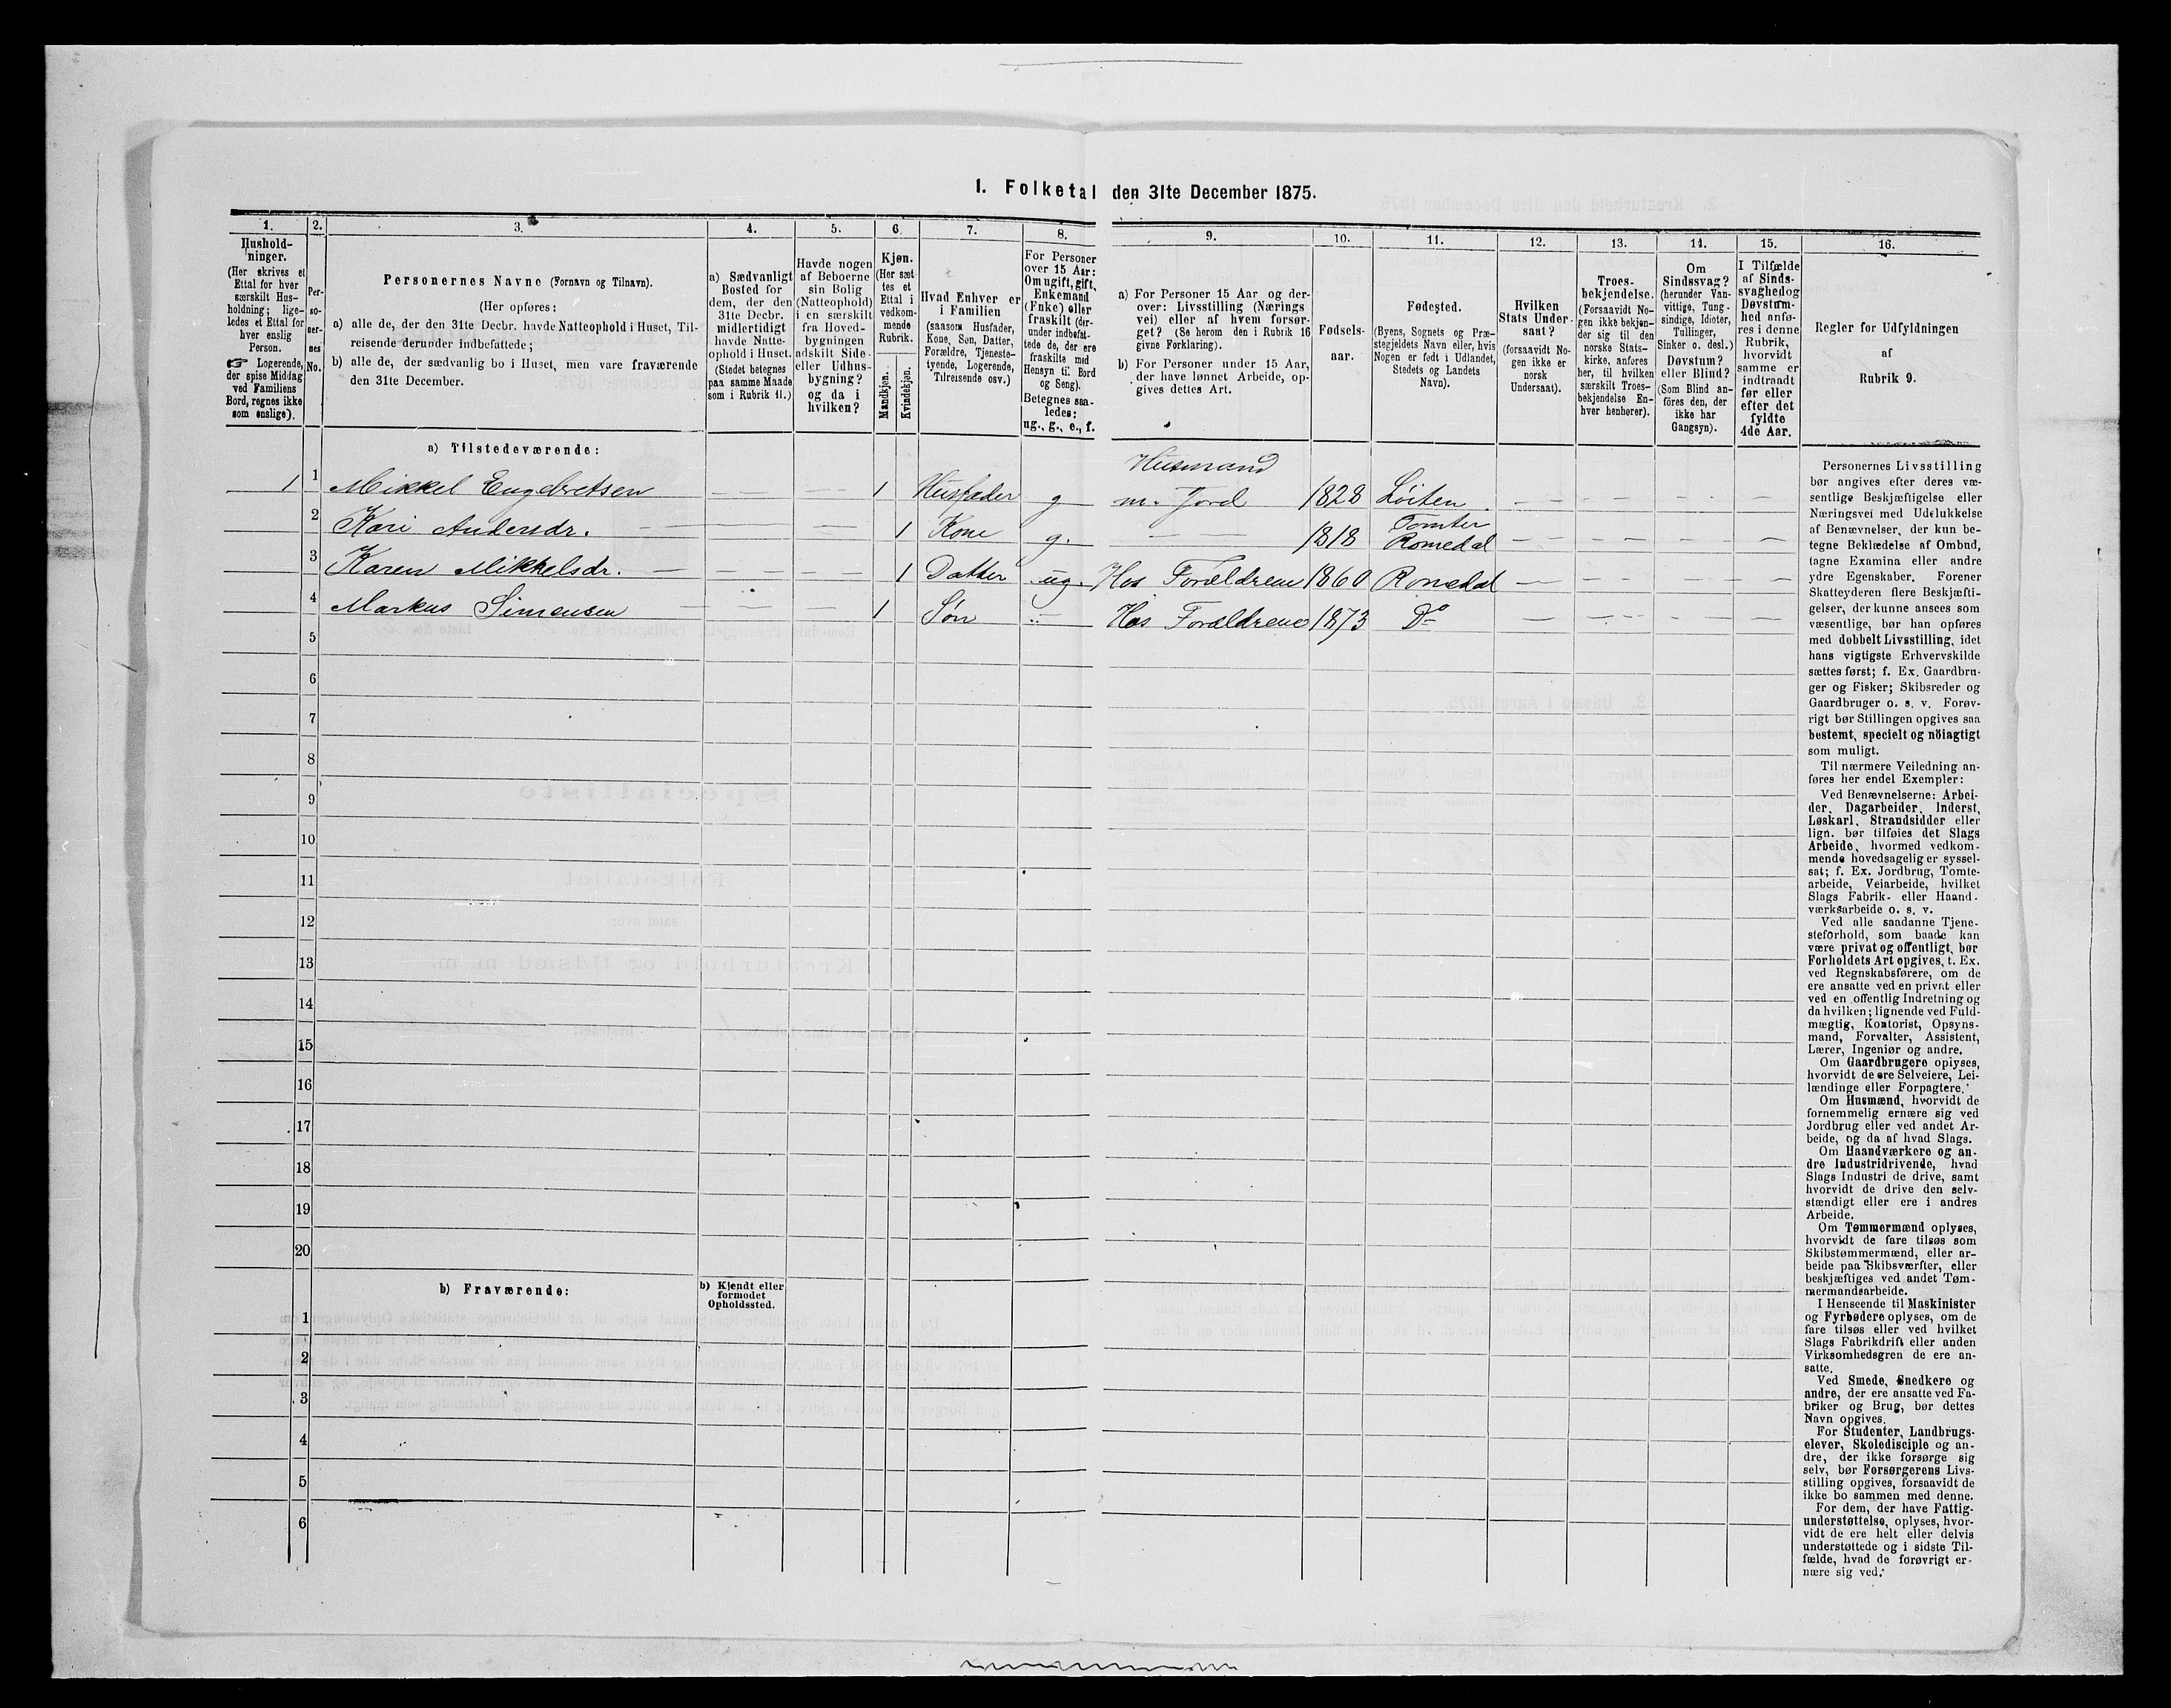 1. Folketal den 31te December 1875.
1.
Hushold-
ninger.
(Her skrives et
Ettal for hver
særskilt Hus-
holdning; lige-
ledes et Ettal for
hver enslig
Person.
☞ Logerende,
der spise Middag
ved Familiens
Bord, regnes ikke
som enslige).
2.
Per-
so-
ner-
nes
No.
3.
Personernes Navne (Fornavn og Tilnavn).
(Her opføres:
a) alle de, der den 31te Decbr. havde Natteophold i Huset, Til-
reisende derunder indbefattede;
b) alle de, der sædvanlig bo i Huset, men vare fraværende
den 31te December.
4.
a) Sædvanligt
Bosted for
dem, der den
31te Decbr.
midlertidigt
havde Natte-
ophold i Huset.
(Stedet betegnes
paa samme Maade
som i Rubrik 11.)
5.
Havde nogen
af Beboerne
sin Bolig
(Natteophold)
i en særskilt
fra Hoved-
bygningen
adskilt Side-
eller Udhus-
bygning?
og da i
hvilken?
6.
Kjøn.
(Her sæt-
tes et
Ettal i
vedkom-
mende
Rubrik.
Mandkjøn.
Kvindekjøn.
7.
Hvad Enhver er
i Familien
(saasom Husfader,
Kone, Søn, Datter,
Forældre, Tjeneste-
tyende, Logerende,
Tilreisende osv.)
8.
For Personer
over 15 Aar:
Om ugift, gift,
Enkemand
(Enke) eller
fraskilt (der-
under indbefat-
tede de, der ere
fraskilte med
Hensyn til Bord
og Seng).
Betegnes saa-
ledes:
ug., g., e., f.
9.
a) For Personer 15 Aar og der-
over: Livsstilling (Nærings
vei) eller af hvem forsør-
get? (Se herom den i Rubrik 16
givne Forklaring).
b) For Personer under 15 Aar,
der have lønnet Arbeide, op-
gives dettes Art.
10.
Fødsels-
aar.
11.
Fødested.
(Byens, Sognets og Præ-
stegjeldets Navn eller, hvis
Nogen er født i Udlandet,
Stedets og Landets
Navn).
12.
Hvilken
Stats Under-
saat?
(forsaavidt No-
gen ikke er
norsk
Undersaat).
13.
Troes-
bekjendelse.
(Forsaavidt No-
gen ikke bekjen-
der sig til den
norske Stats-
kirke, anføres
her, til hvilken
særskilt Troes-
bekjendelse En-
hver henhører).
14.
Om
Sindssvag?
(herunder Van-
vittige, Tung-
sindige, Idioter,
Tullinger,
Sinker o. desl.)
Døvstum?
eller Blind?
(Som Blind an-
føres den, der
ikke har
Gangsyn).
15.
I Tilfælde
af Sinds-
svaghed og
Døvstum-
hed anfø-
res i denne
Rubrik,
hvorvidt
samme er
indtraadt
før eller
efter det
fyldte
4de Aar.
16.
Regler for Udfyldningen
af
Rubrik 9.
a) Tilstedeværende:
Husmand
1 1 Mikkel Engebretsen — — — 1 Husfader g m. Jord 1828 Löiten — — — — —
Tomter
2 Kari Andersdr. — — — 1 Kone g. — — 1818 Romedal — — — — —
3 Karen Mikkelsdr. — — — 1 Datter ug. Hos Forældrene 1860 Romedal — — — — —
4 Markus Simensen — — — 1 Søn — Hos Forældrene 1873 Do — — — — —
5
6
7
8
9
10
11
12
13
14
15
16
17
18
19
20
b) Fraværende:
b) Kjendt eller
formodet
Opholdssted.
1
2
3
4
5
6
Personernes Livsstilling
bør angives efter deres væ-
sentlige Beskjæftigelse eller
Næringsvei med Udelukkelse
af Benævnelser, der kun be-
tegne Beklædelse af Ombud,
tagne Examina eller andre
ydre Egenskaber. Forener
Skatteyderen flere Beskjæfti-
gelser, der kunne ansees som
væsentlige, bør han opføres
med dobbelt Livsstilling, idet
hans vigtigste Erhvervskilde
sættes først; f. Ex. Gaardbru-
ger og Fisker; Skibsreder og
Gaardbruger o. s. v. Forøv-
rigt bør Stillingen opgives saa
bestemt, specielt og nöiagtigt
som muligt.
Til nærmere Veiledning an-
føres her endel Exempler:
Ved Benævnelserne: Arbei-
der, Dagarbeider, Inderst,
Løskarl, Strandsidder eller
lign. bør tilføies det Slags
Arbeide, hvormed vedkom-
mende hovedsagelig er syssel-
sat; f. Ex. Jordbrug, Tomte-
arbeide, Veiarbeide, hvilket
Slags Fabrik- eller Haand-
værksarbeide o. s. v.
Ved alle saadanne Tjene-
steforhold, som baade kan
være privat og offentligt, bør
Forholdets Art opgives, t. Ex.
ved Regnskabsførere, om de
ere ansatte ved en privat eller
ved en offentlig Indretning og
da hvilken; lignende ved Fuld-
mægtig, Kontorist, Opsyns-
mand, Forvalter, Assistent,
Lærer, Ingeniør og andre.
Om Gaardbrugere oplyses,
hvorvidt de ere Selveiere, Lei-
lændinge eller Forpagtere.
Om Husmænd, hvorvidt de
fornemmelig ernære sig ved
Jordbrug eller ved andet Ar-
beide, og da af hvad Slags.
Om Haandværkere og an-
dre Industridrivende, hvad
Slags Industri de drive, samt
hvorvidt de drive den selv-
stændigt eller ere i andres
Arbeide.
Om Tømmermænd oplyses,
hvorvidt de fare tilsøs som
Skibstømmermænd, eller ar-
beide paa Skibsværfter, eller
beskjæftiges ved andet Tøm-
mermandsarbeide.
I Henseende til Maskinister
og Fyrbødere oplyses, om de
fare tilsøs eller ved hvilket
Slags Fabrikdrift eller anden
Virksomhedsgren de ere an-
satte.
Ved Smede, Snedkere og
andre, der ere ansatte ved Fa-
briker og Brug, bør dettes
Navn opgives.
For Studenter, Landbrugs-
elever, Skoledisciple og an-
dre, der ikke forsørge sig
selv, bør Forsørgerens Livs-
stilling opgives, forsaavidt de
ikke bo sammen med denne.
For dem, der have Fattig-
understøttelse, oplyses, hvor-
vidt de ere helt eller delvis
understøttede og i sidste Til-
fælde, hvad de forøvrigt er-
nære sig ved.